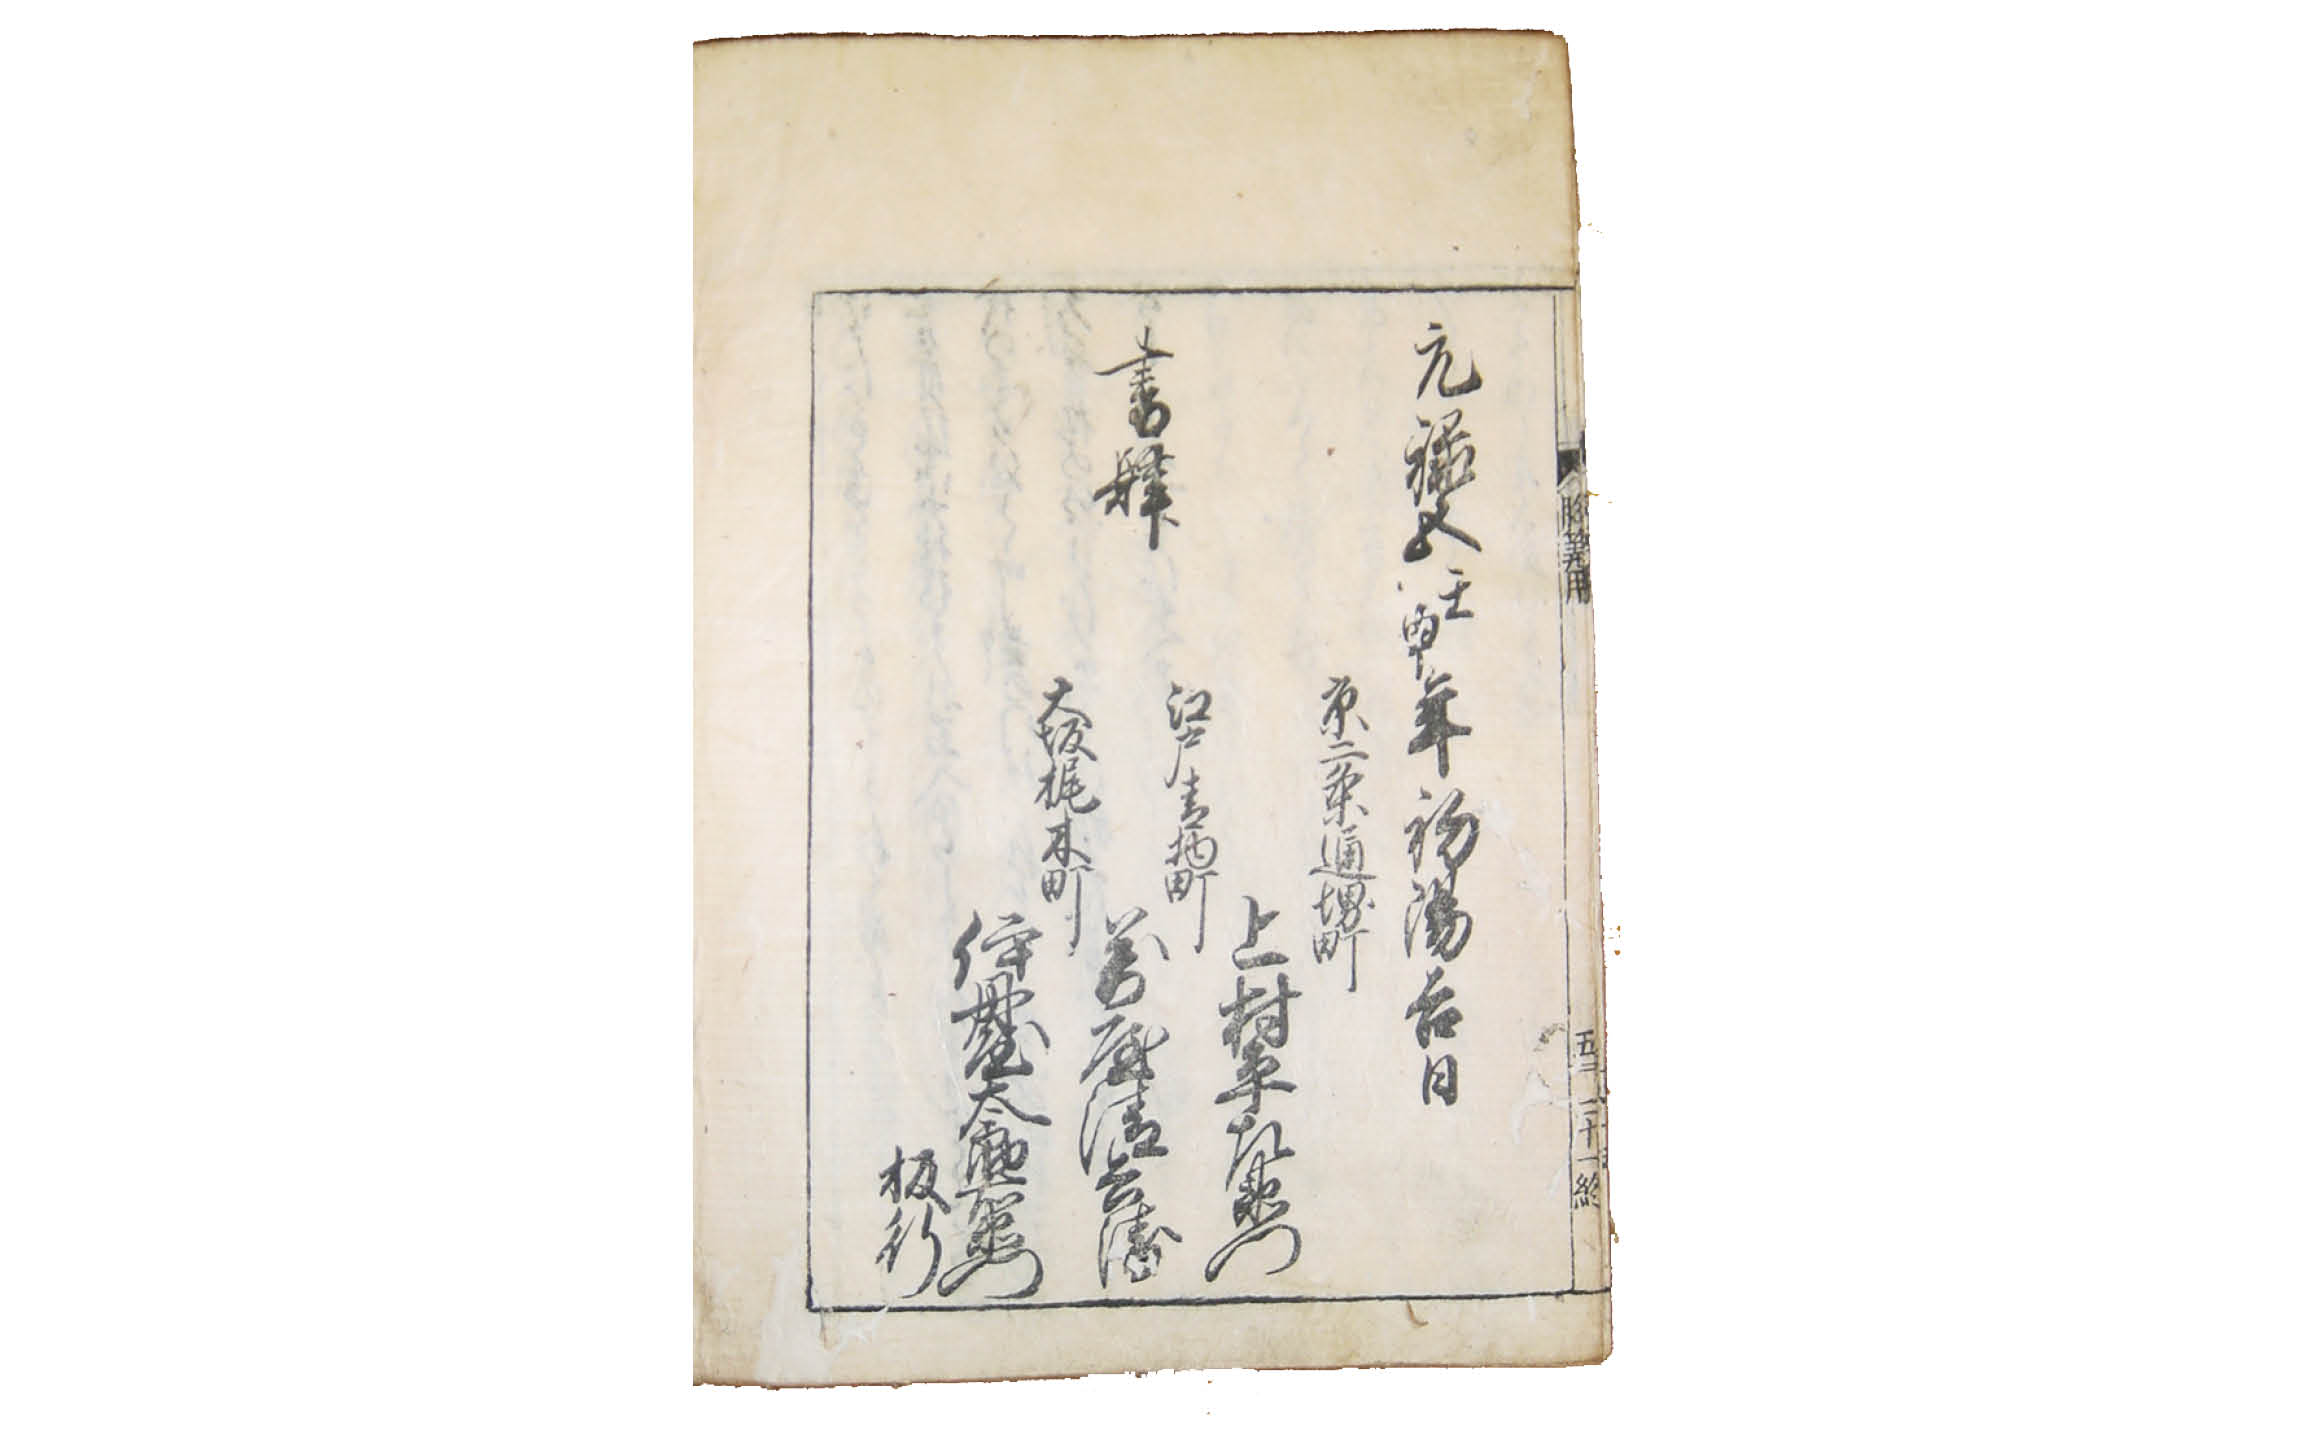 胸算用
元禄五壬申年初陽吉日
京二条通堺町
上村平左衛門
江戸青物町
書肆
萬屋清兵衛
大坂梶木町
伊丹屋太郎右衛門
板行